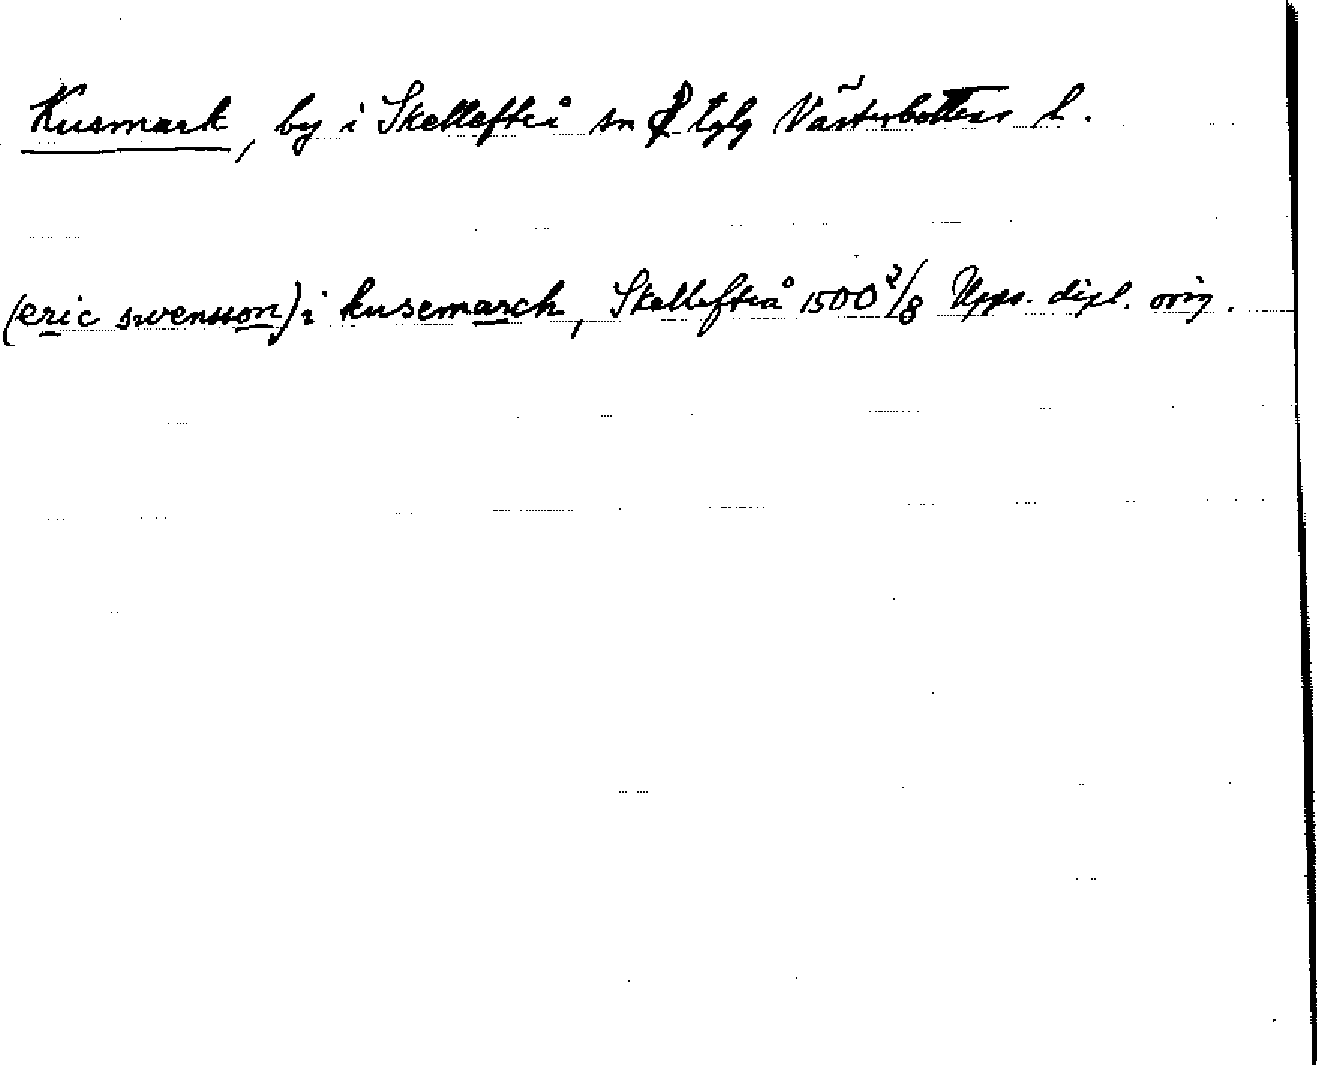 Kusmark, by i Skellefteå sn o tglg Västerbottens l.
(eric swensson) i kusemarch, Skellefteå 1500 2/8 Upps. dipl. orig.